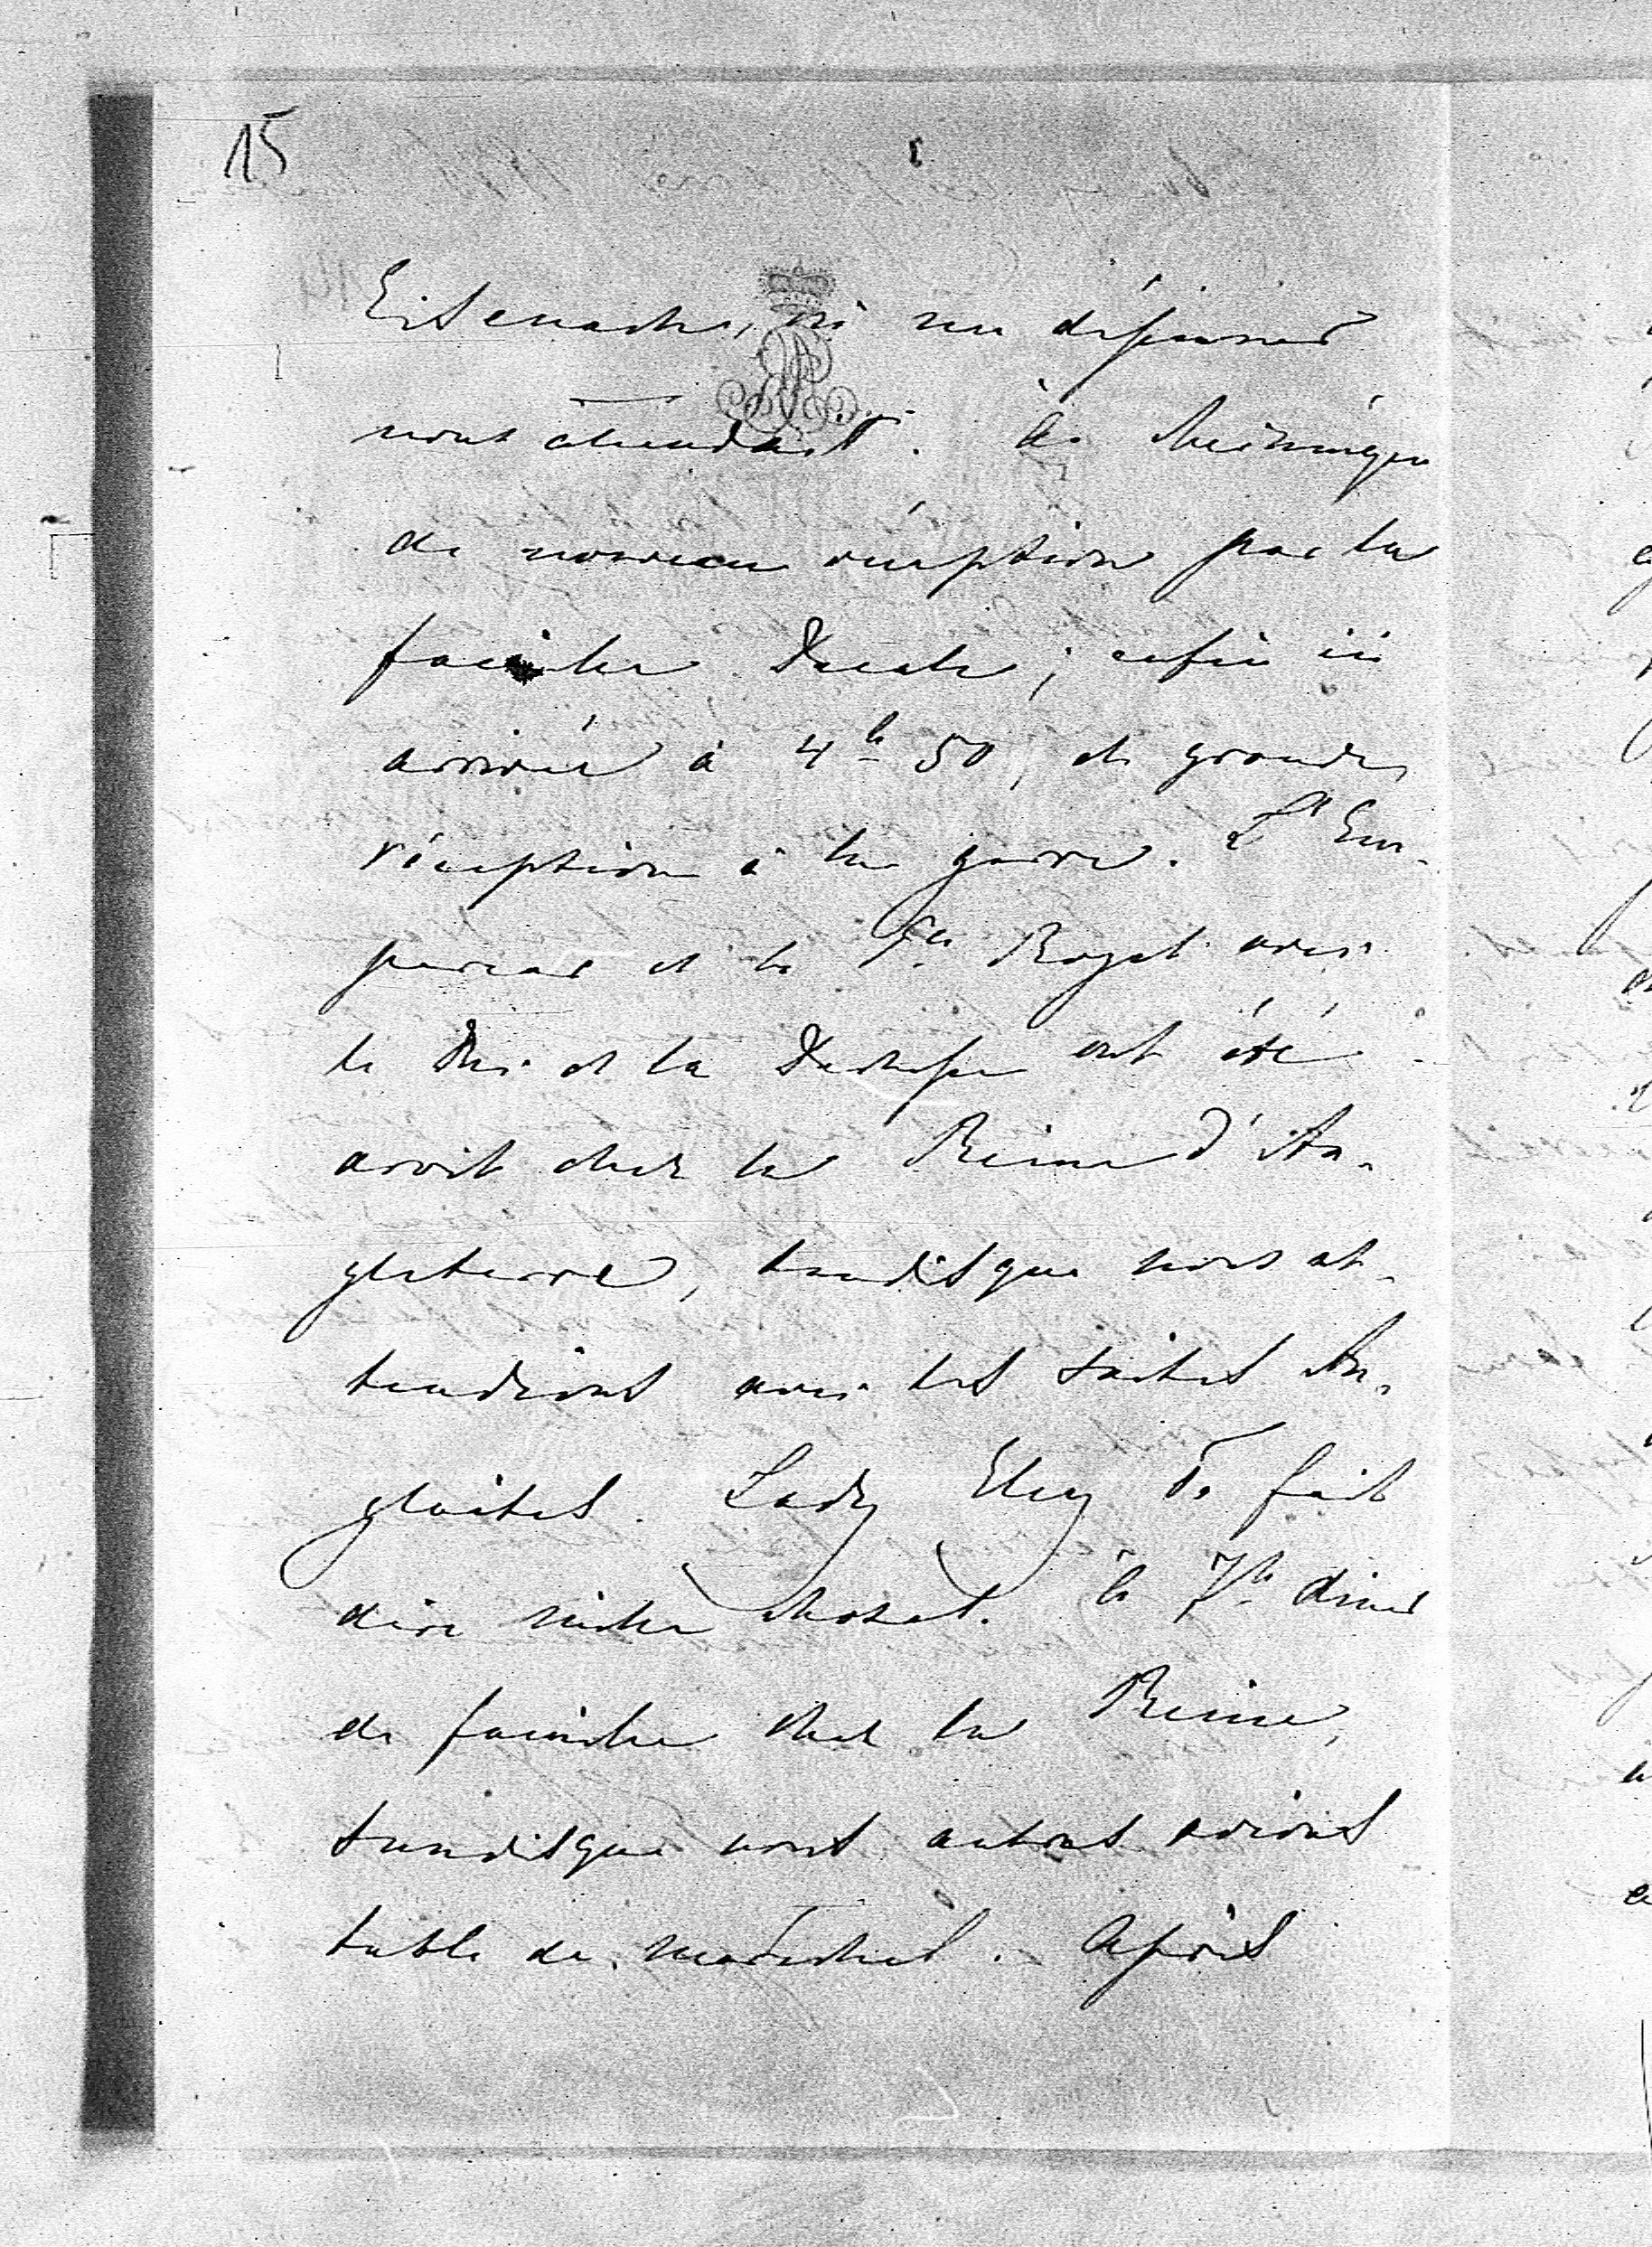 15
Eisenach, où un déjeuner
nous attendait. à Meiningen
de nouveau réception par la
famille Ducale; enfin ici
arrivée à 4h 50, et grande
réception à la gare. L'Em-
pereur et le Pce Royal avec
le Duc et la Duchesse ont été
avoit chez la Reine d'An-
gleterre, tandisque nous at-
tendions avec les suites An-
glaises. Lady Ely T. fait
dire mille choses. à 7h diner
de famille chez la Reine,
tandisque nous autres avions
table de maréchal. Après